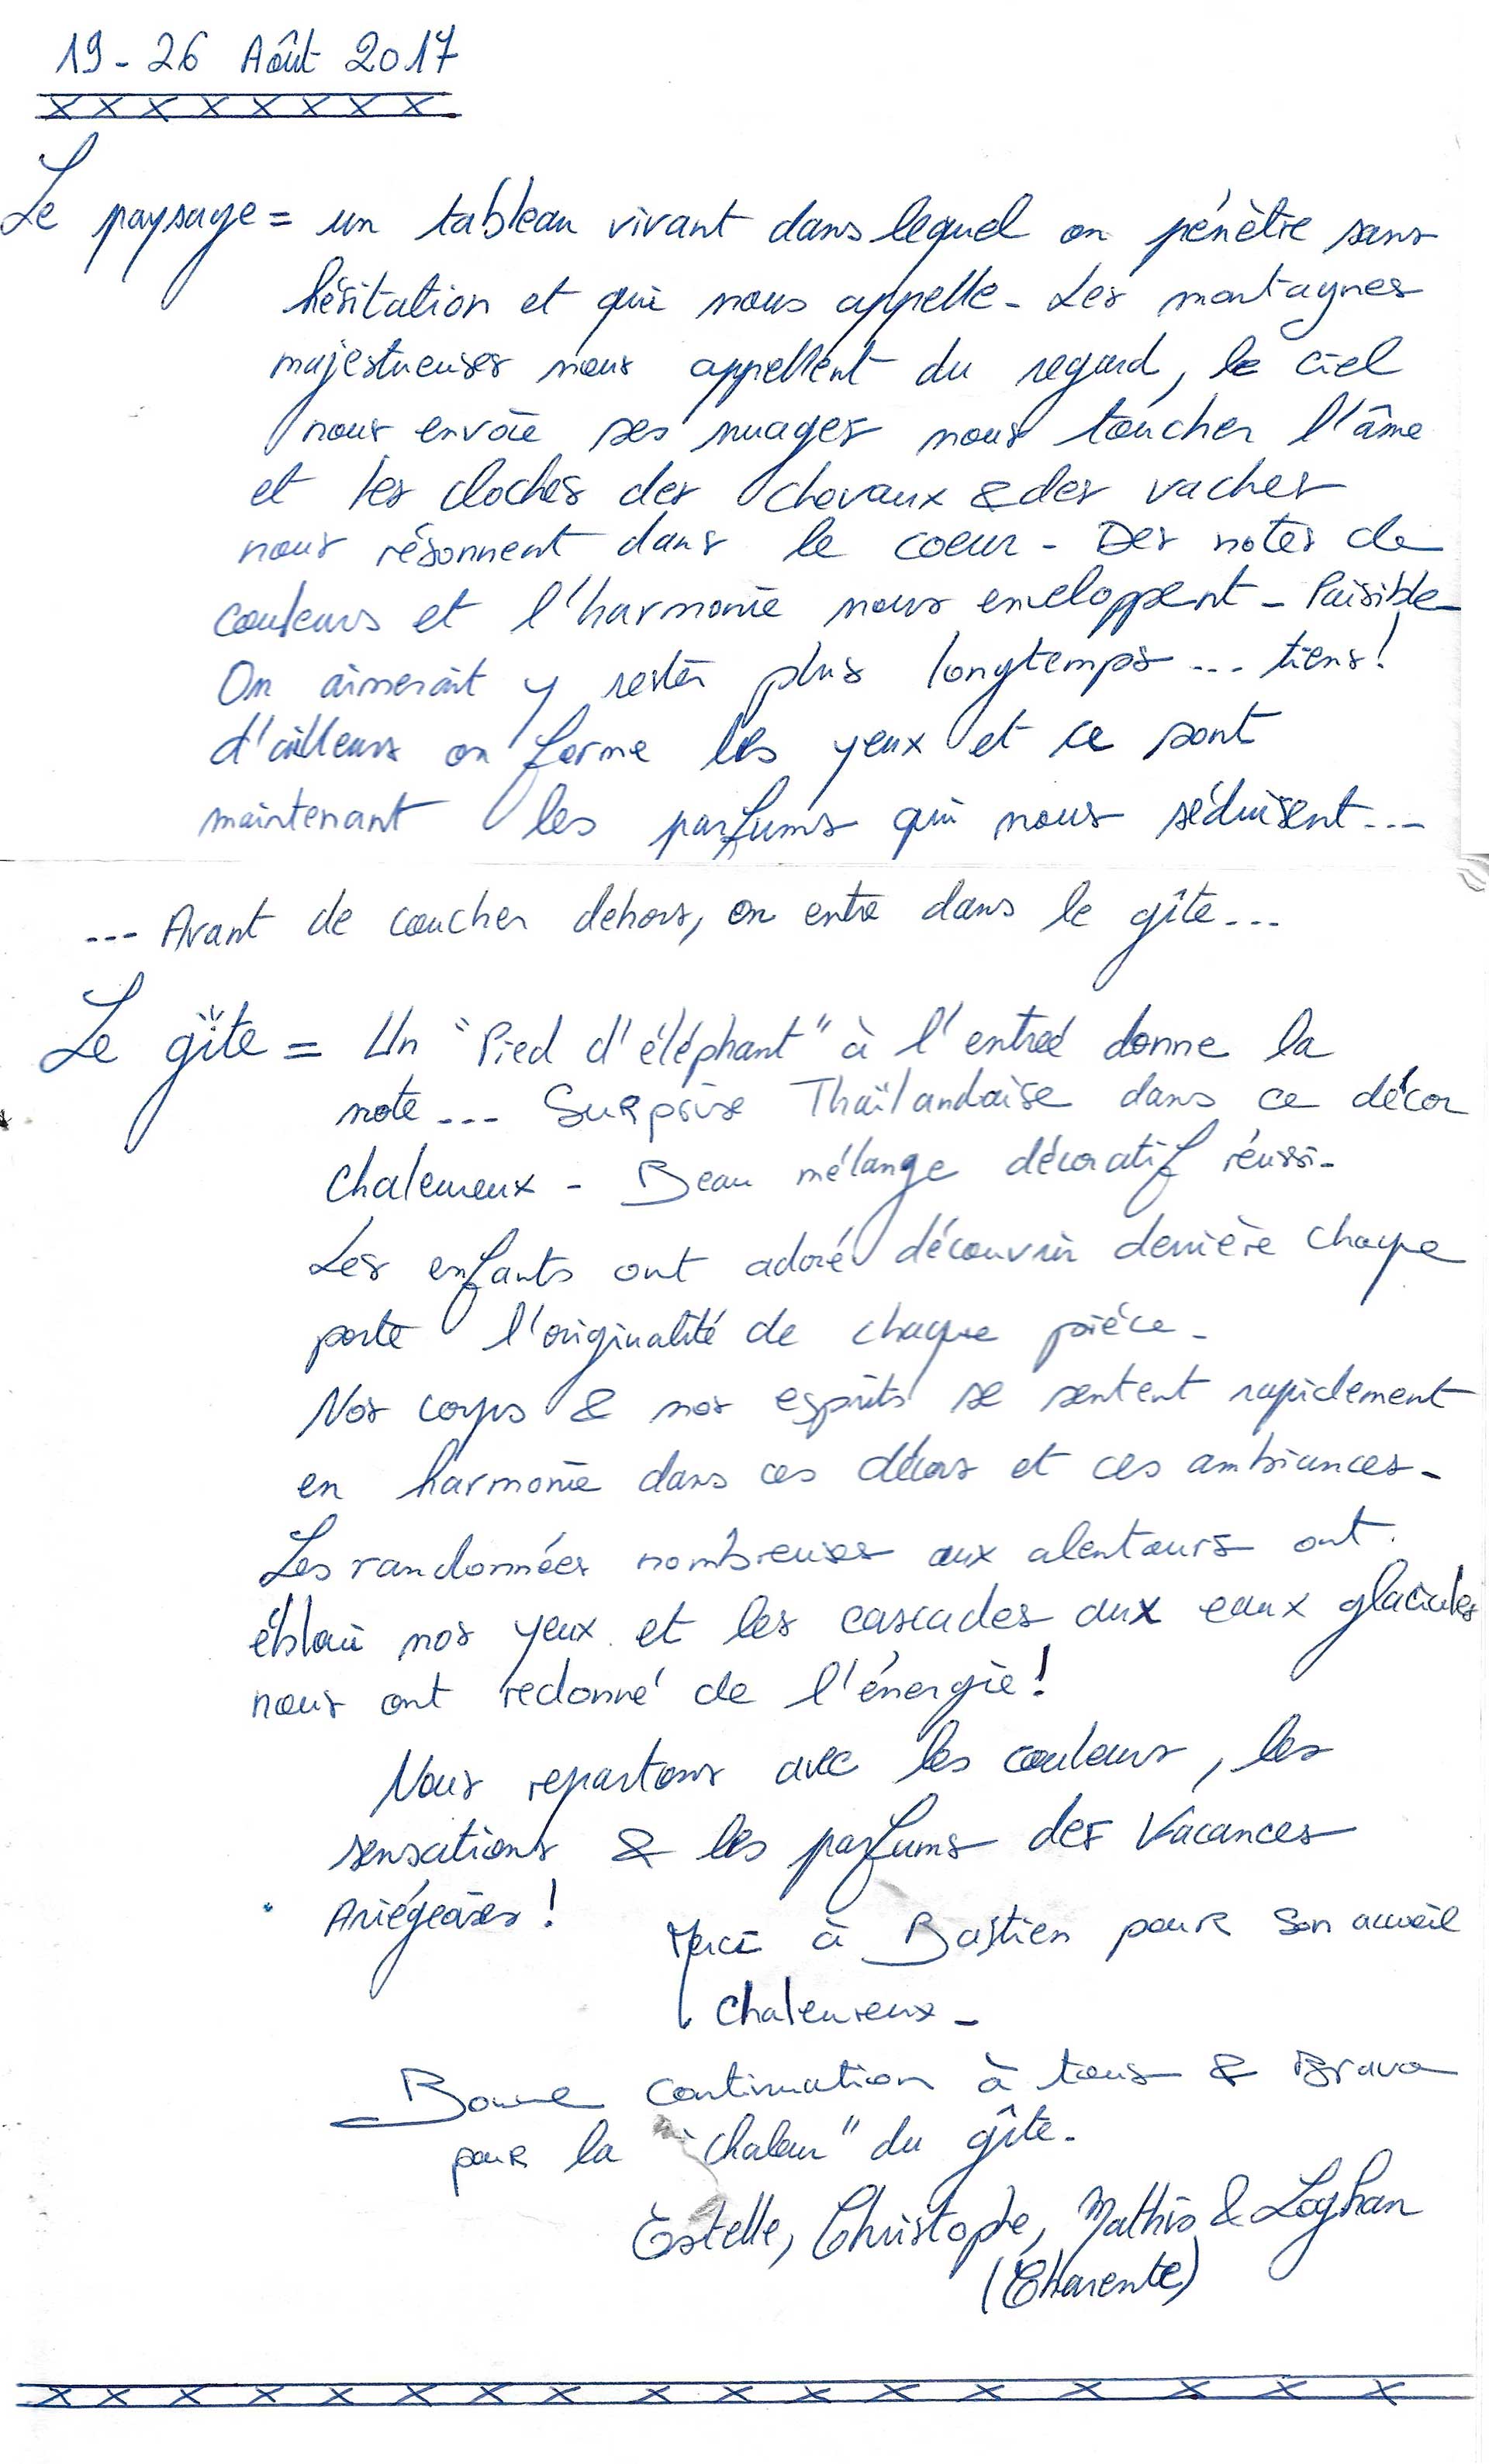 19-26 Août 2017
Le paysage = un tableau vivant dans lequel on pénètre sans
hésitation et qui nous appelle - Les montagnes
majestueuses nous appellent du regard, le ciel
nous envoie ses nuages nous toucher l'âme
et les cloches des chevaux & des vaches
nous résonnent dans le coeur - Des notes de
couleurs et l'harmonie nous enveloppent - Paisible
On aimerait y rester plus longtemps --- tiens!
d'ailleurs on ferme les yeux et ce sont
maintenant les parfums qui nous séduisent ---
--- Avant de coucher dehors, on entre dans le gîte ---
Le gîte = Un "Pied d'éléphant" à l'entrée donne la
note --- Surprise Thaïlandaise dans ce décor
chaleureux - Beau mélange décoratif réussi -
Les enfants ont adoré découvrir derrière chaque
porte l'originalité de chaque pièce -
Nos corps & nos esprits se sentent rapidement
en harmonie dans ces décors et ces ambiances -
Les randonnées nombreuses aux alentours ont
ébloui nos yeux et les cascades aux eaux glaciales
nous ont redonné de l'énergie!
Nous repartons avec les couleurs, les
sensations & les parfums des Vacances
Ariégeoises!
Merci à Bastien pour son accueil
chaleureux -
Bonne continuation à tous & Bravo
pour la "chaleur" du gîte -
Estelle, Christophe, Mathis & Loghan
(Charente)